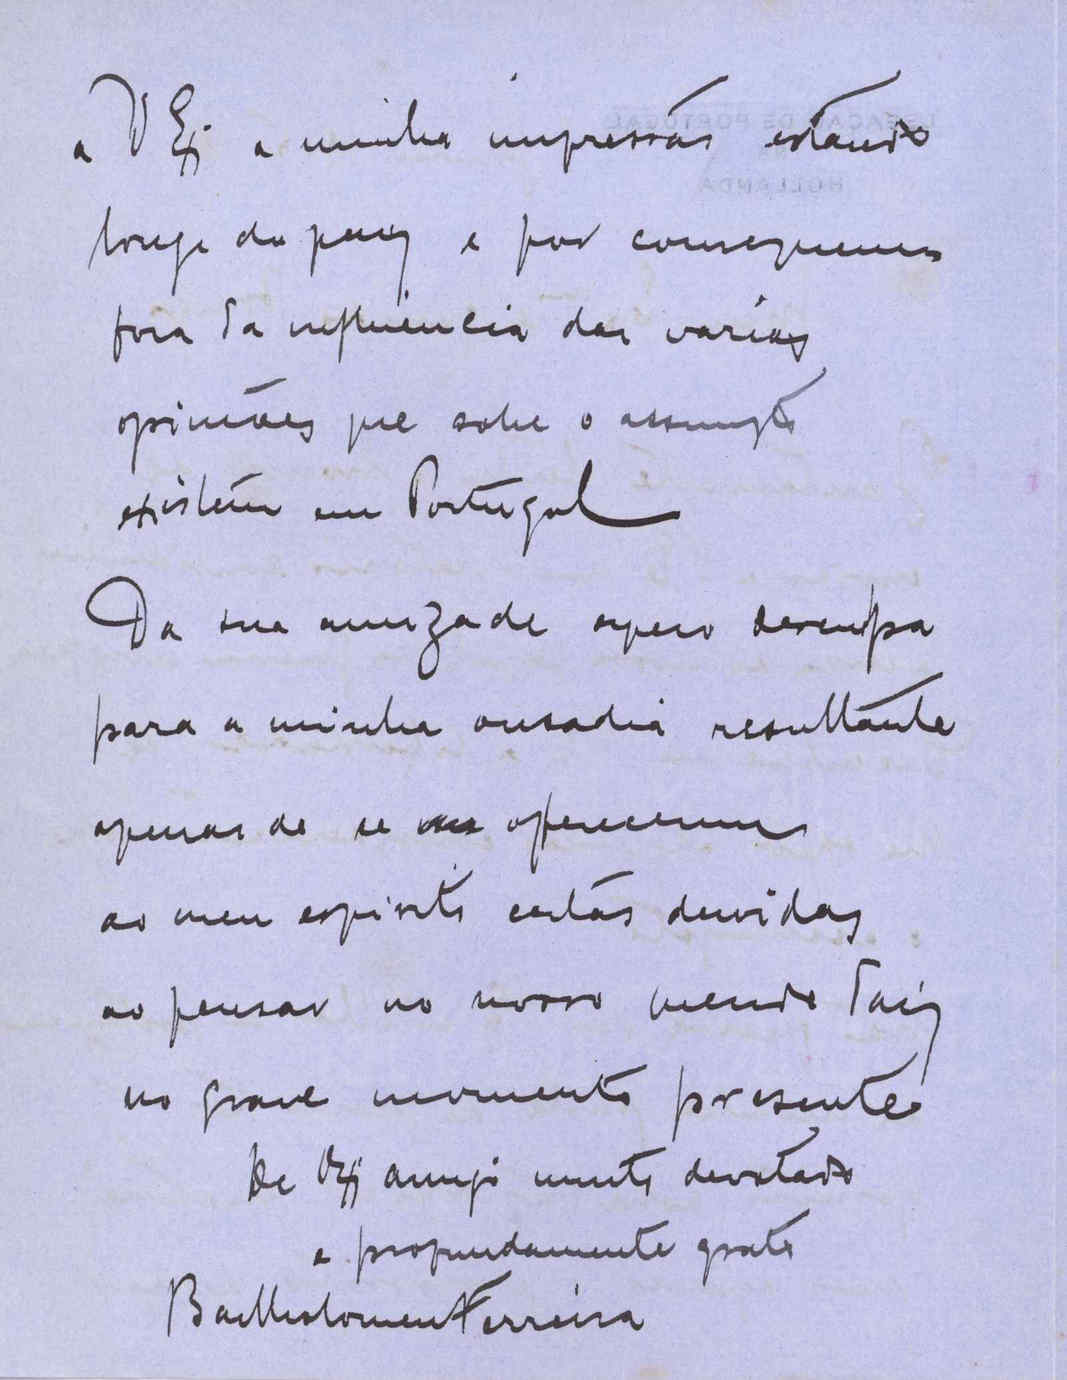 a V Ex a minha impressão estando
longe do paiz e por consequencia
fora da influencia das varias
opiniões que sobre o assumpto
existem em Portugal
Da sua amizade espero desculpa
para a minha ousadia resultante
apenas de se offerecerem
ao meu espirito certas duvidas
ao pensar no nosso Paiz
no grave momento presente
De VEx amigo muito devotado
e profundamente grato
Bartholomeu Ferreira
LEGAÇÃO DE PORTUGAL
HOLLANDA